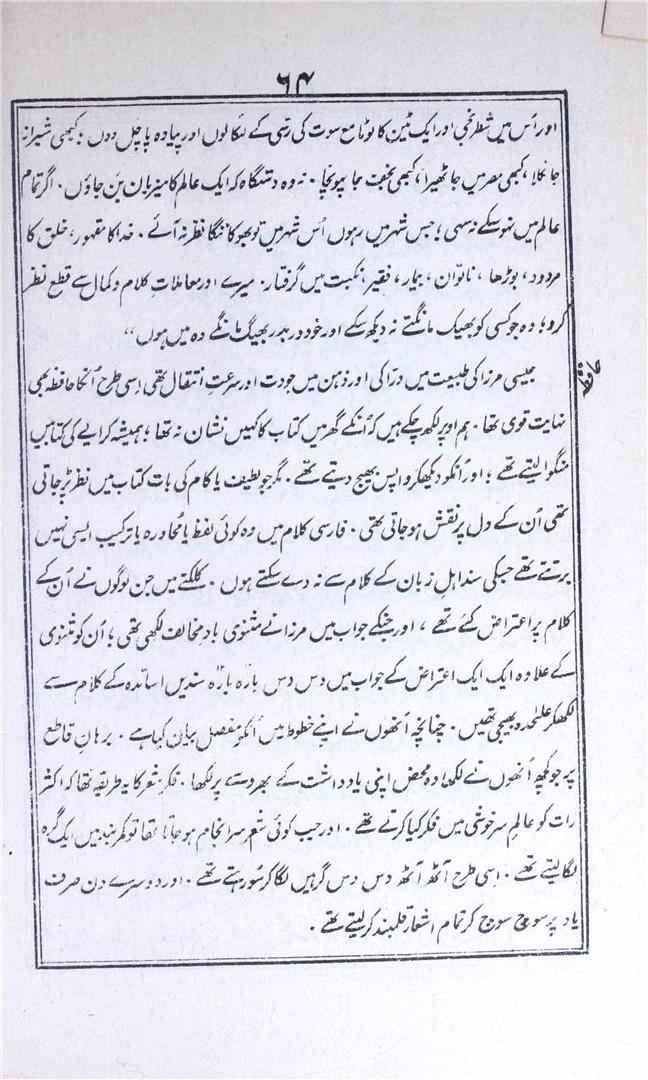 ۶۴
اور اُس میں شطرنجی اور ایک ٹین کا لوٹا مع سوت کی رسّی کے لٹکا لوں اور پیادہ پا چل دوں؛ کبھی شیراز
جا نکلا، کبھی مصر میں جا ٹھیرا، کبھی نجف جا پہونچا۔ نہ وہ دستگاہ کہ ایک عالم کا میزبان بَن جاؤں۔ اگر تمام
عالم میں نہوسکے نہ سہی؛ جس شہر میں رہوں اُس شہر میں تو بھوکا ننگا نظر نہ آئے۔ خدا کا مقہور، خلق کا
مردود، بوڑھا، ناتوان، بیمار، فقیر، نکبت میں گرفتار۔ میرے اور معاملاتِ کلام و کمال سے قطع نظر
کرو؛ وہ جو کسی کو بھیک مانگتے نہ دیکھ سکے اور خود در بدر بھیگ مانگے وہ میں ہوں"
حافظہ
جیسی مرزا کی طبیعت میں درّاکی اور ذہن میں جودت اور سرعتِ انتقال تھی اِسی طرح اُنکا حافظہ بھی
نہایت قوی تھا۔ ہم اوپر لکھ چکے ہیں کہ اُنکے گھر میں کتاب کا کہیں نشان نہ تھا؛ ہمیشہ کرایے کی کتابیں
منگوا لیتے تھے؛ اور اُنکو دیکھکر واپس بھیج دیتے تھے۔ مگر جو لطیف یا کام کی بات کتاب میں نظر پڑجاتی
تھی اُن کے دل پر نقش ہو جاتی تھی۔ فارسی کلام میں وہ کوئی لفظ یا مُحاورہ یا ترکیب ایسی نہیں
برتتے تھے جسکی سند اہلِ زبان کے کلام سے نہ دے سکتے ہوں۔ کلکتے میں جن لوگوں نے اُن کے
کلام پر اعتراض کئے تھے، اور جنکے جواب میں مرزا نے مثنوی بادِ مخالف لکھی تھی؛ اُن کو مثنوی
کے علاوہ ایک ایک اعتراض کے جواب میں دس دس بارہ بارہ سندیں اساتذہ کے کلام سے
لکھکر علٰحدہ بھیجی تھیں۔ چنانچہ اُنھوں نے اپنے خطوط میں اُسکو مفصل بیان کیا ہے۔ برہانِ قاطع
پر جو کچھ اُنھوں نے لکھا وہ محض اپنی یاد داشت کے بھروسے پر لکھا۔ فکرِ شعر کا یہ طریقہ تھا کہ اکثر
رات کو عالمِ سرخوشی میں فکر کیا کرتے تھے۔ اور جب کوئی شعر سرانجام ہو جاتا تھا تو کمربند میں ایک گرہ
لگا لیتے تھے۔ اِسی طرح آٹھ آٹھ دس دس گرہیں لگا کر سو رہتے تھے۔ اور دوسرے دن صرف
یاد پر سوچ سوچ کر تمام اشعار قلمبند کر لیتے تھے۔